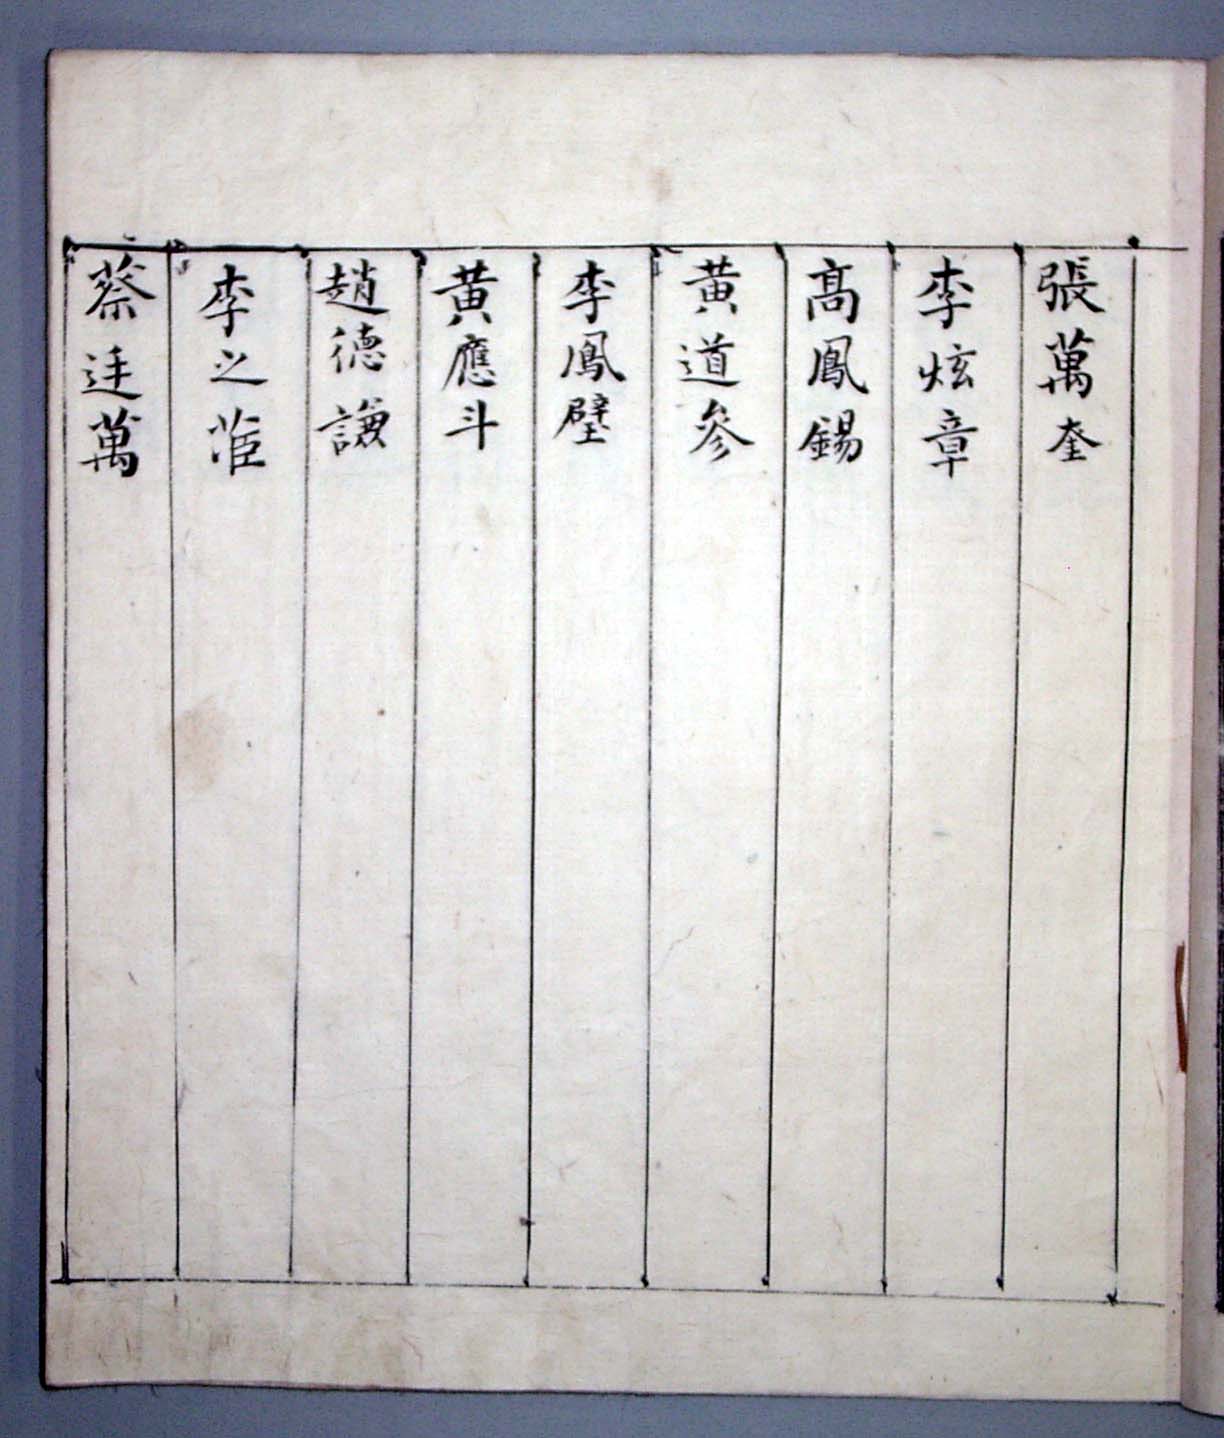 張萬奎
李炫章
高鳳錫
黃道參
李鳳璧
黃應斗
趙德謙
李之
蔡廷萬